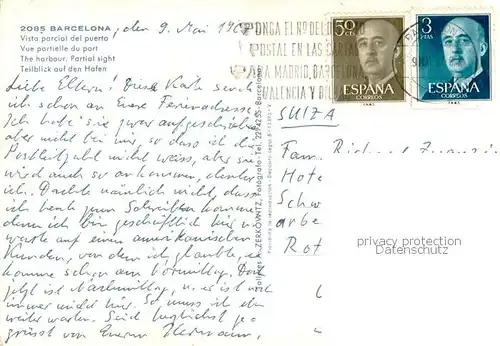 2085 BARCELONA
Vista parcial del puerto
Vue partielle du port
The harbour. Partial sight
Teilblick auf den Hafen
, den 9. Mai 196
Liebe Eltern! Diese Karte sende
ich schon an Eure Ferienadresse.
Ich habe sie zwar aufgeschrieben
aber nicht bei mir, so dass ich die
Postleitzahl nicht weiss, aber sie
wird auch so ankommen, denke
ich. Dachte nämlich nicht, dass
ich heute zum Schreiben komme
denn ich bin geschäftlich hier u.
warte auf einen amerikanischen
Kunden, von dem ich glaubte, er
komme schon am Vormittag. Doch
jetzt ist Nachmittag, u. er ist noch
immer nicht hier. So muss ich eben
weiter warten. Seid herzlichst ge-
grüsst von Eurem Hermann.
Talleres A. ZERKOWITZ, Fotógrafo - Tel. 2274235 - Barcelona
PONGA EL Nº DEL
POSTAL EN LAS CARTAS
PARA MADRID, BARCELONA
VALENCIA Y
50 CTS
ESPAÑA
CORREOS
3 PTAS
ESPAÑA
CORREOS
SUIZA
Fam. Ri
Hote
Schw
arbe
Rot
privacy protection
Datenschutz